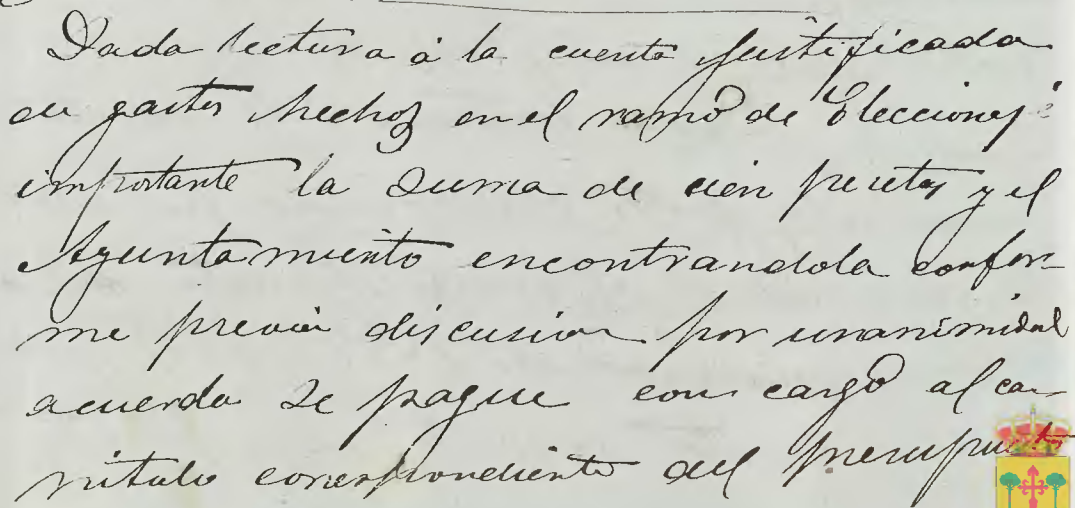 Dada lectura á la cuenta justificada
de gastos hechos en el ramo de Elecciones
importante la suma de cien pesetas y el
Ayuntamiento encontrandola confor-
me previa discusion por unanimidad
acuerda se pague con cargo al ca-
pitulo correspondiente del presupuesto